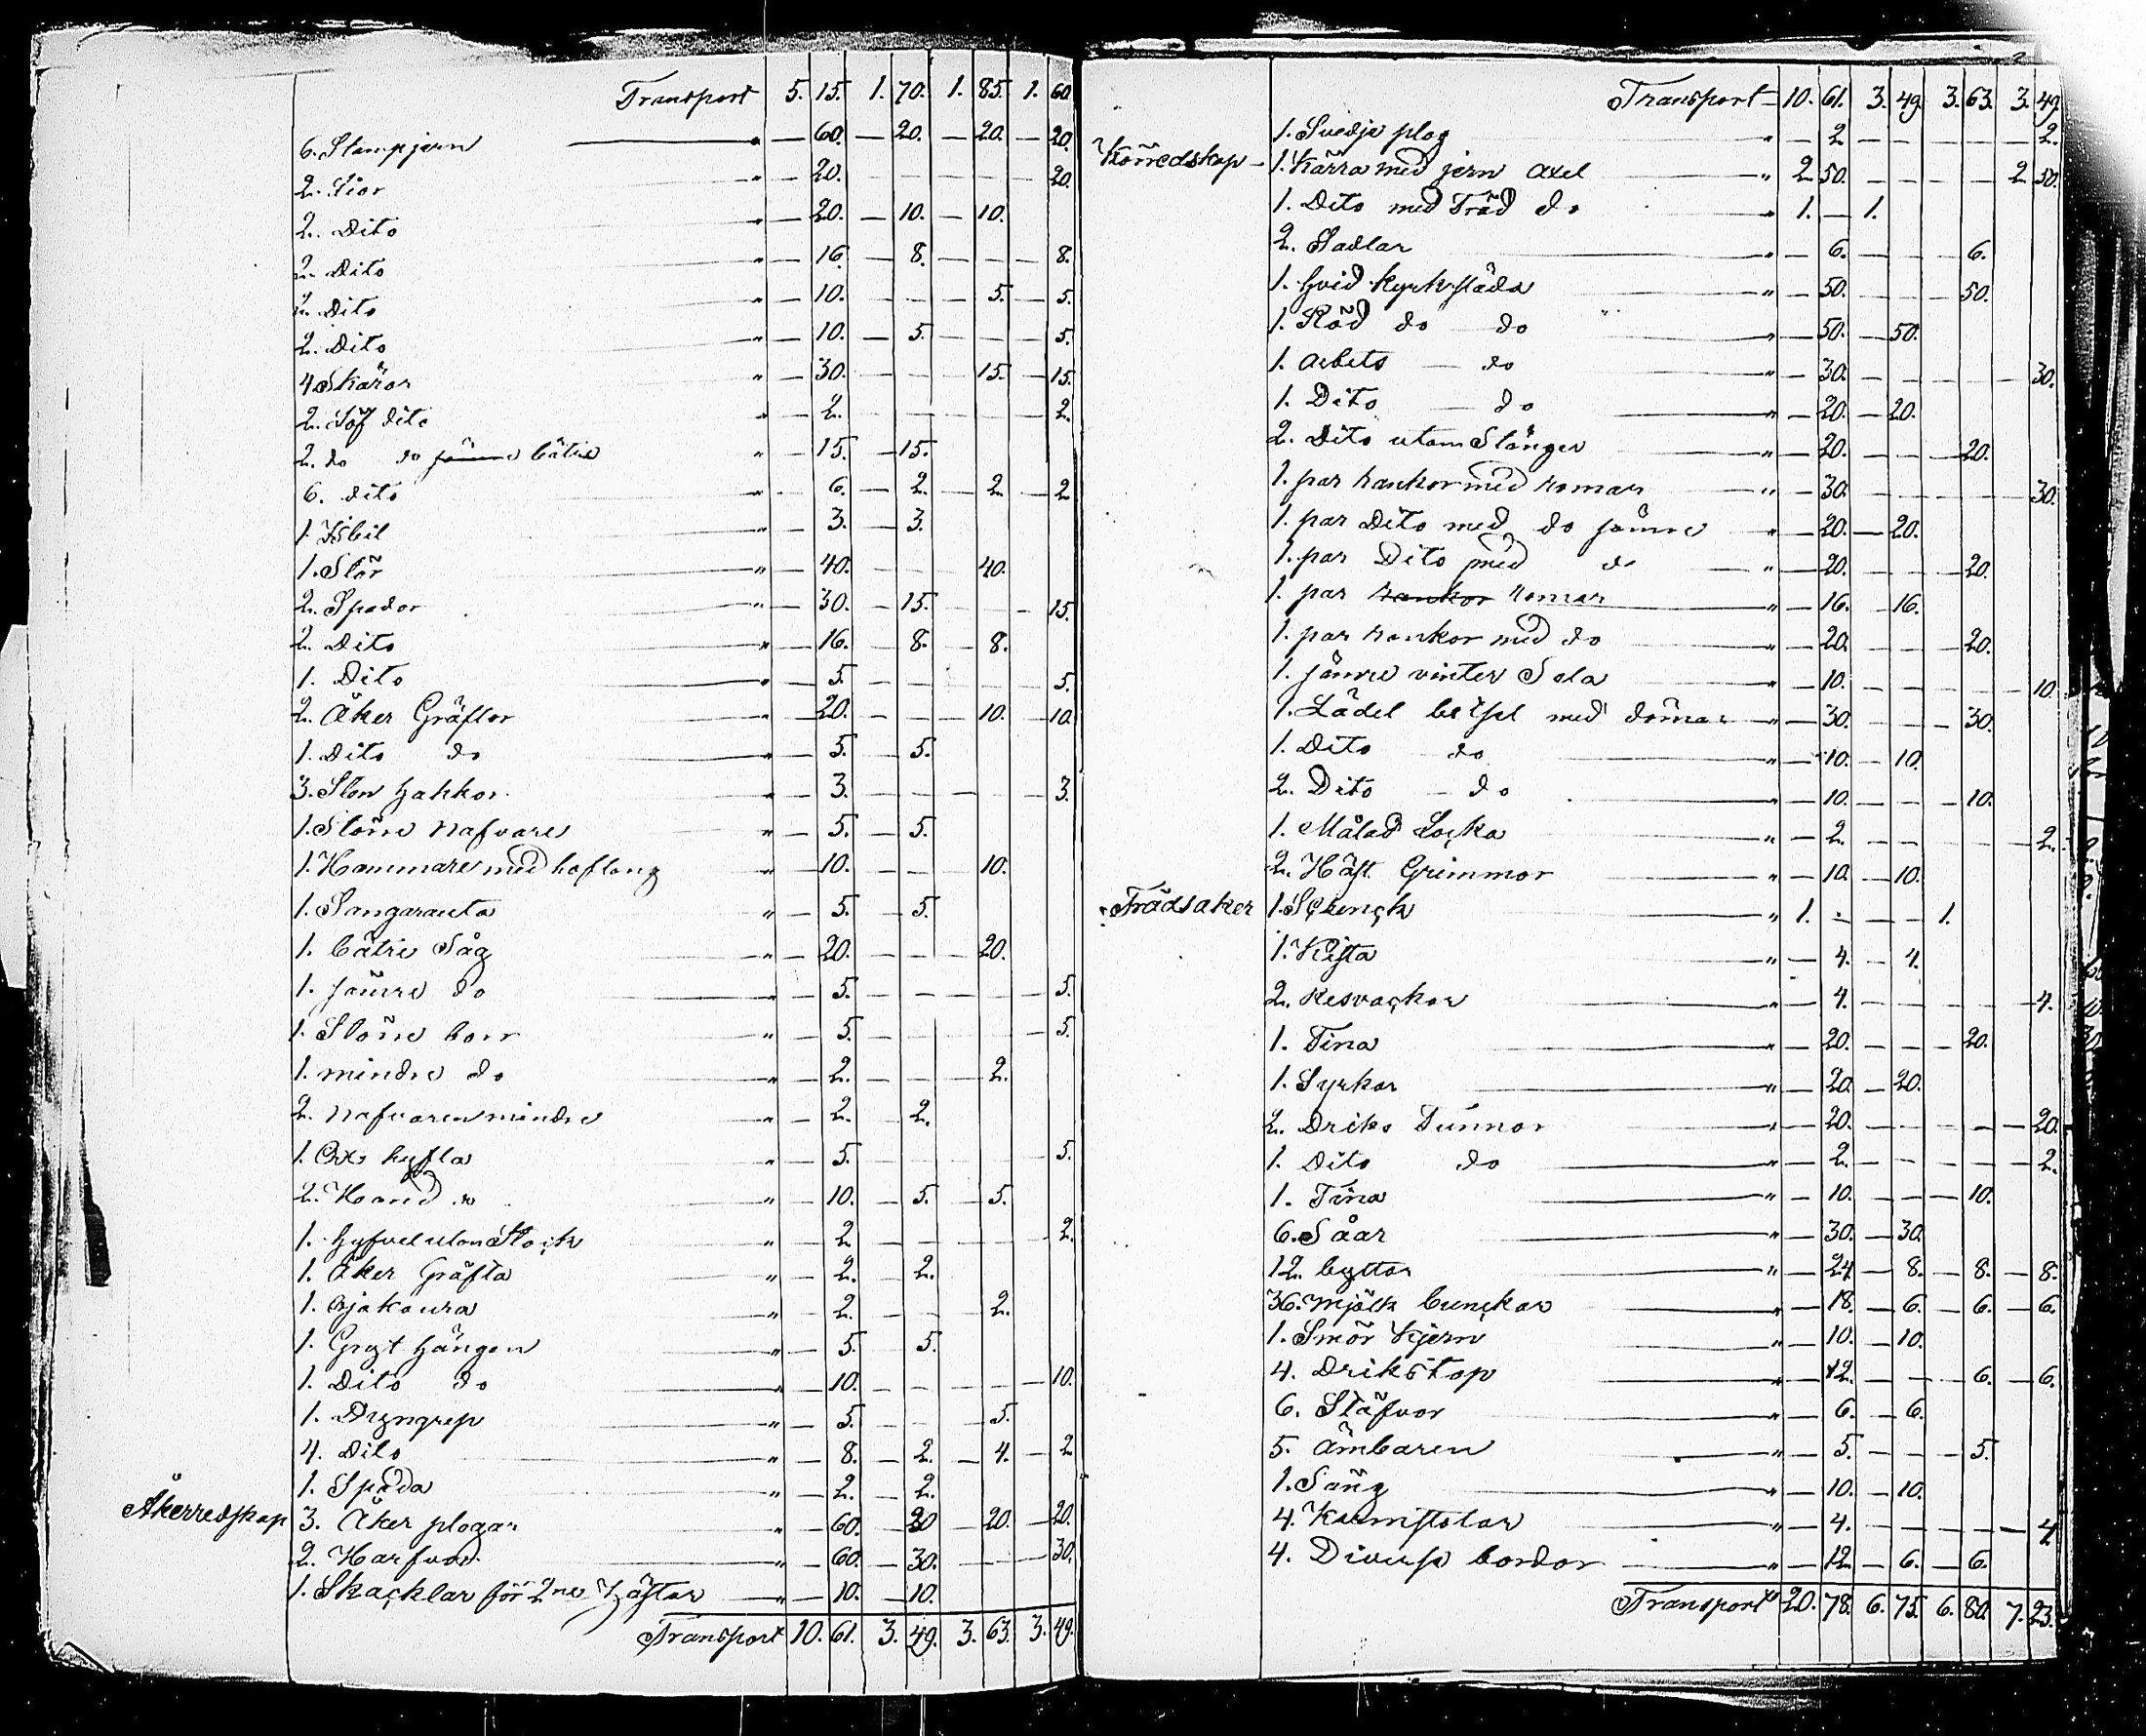 Transport 5. 15. 1. 70. 1. 85. 1. 60
6. Stampjern " — 60. — 20. — 20. — 20.
2. Lior " — 20. — — — — — 20.
2. Dito " — 20. — 10. — 10.
2. Dito " — 16. — 8. — — — 8.
2. Dito " — 10. — — — 5. — 5.
2. Dito " — 10. — 5. — — — 5.
4 Skäror " — 30. — — — 15. — 15.
2. Löf dito " — 2. — — — — — 2.
2. do do bätre " — 15. — 15.
6. dito " — 6. — 2. — 2. — 2
1. Isbil " — 3. — 3.
1. Slör " — 40. — — — 40.
2. Spador " — 30. — 15. — — — 15.
2. Dito " — 16. — 8. — 8.
1. Dito " — 5. — — — — — 5.
2. Åker Gräftor " — 20. — — — 10. — 10.
1. Dito do " — 5. — 5.
3. Sten hakkor " — 3. — — — — — 3.
1. Störe Nafvare " — 5. — 5.
1. Hammare med hoftong " — 10. — — — 10.
1. Sangarauta " — 5. — 5.
1. bätre Såg " — 20. — — — 20.
1. sämre do " — 5. — — — — — 5.
1. Störe borr " — 5. — — — — — 5.
1. mindre do " — 2. — — — 2.
2. Nafvaren mindre " — 2. — 2.
1. Ox hyfla " — 5. — — — — — 5.
2. Hand do " — 10. — 5. — 5.
1. hyfvel utan Stock " — 2 — — — — — 2.
1. Åker Gräfta " — 2. — 2.
1. Ojakoura " — 2. — — — 2.
1. Gryt hängen " — 5. — 5.
1. Dito do " — 10. — — — — — 10.
1. Dyngrep " — 5. — — — 5.
4. Dito " — 8. — 2. — 4. — 2
1. Spada " — 2. — 2.
Åkerredskap 3. Åker plogar " — 60. — 20 — 20. — 20.
2. Harfvor " — 60. — 30. — — — 30.
1. Skacklar för 2ne Hästar " — 10. — 10.
Transport 10. 61. 3. 49. 3. 63. 3. 49.
Transport 10. 61. 3. 49 3. 63. 3. 49
1. Svedje plog " — 2 — — — — — 2.
Körredskap — 1. Kärra med jern axel " 2 50. — — — — 2 50.
1. Dito med Träd do " 1. — 1.
2. Sadlar " — 6. — — — 6.
1. hvid kyrksläda " — 50. — — — 50.
1. Röd do do " — 50. — 50.
1. Arbets do " — 30. — — — — — 30.
1. Dito do " — 20. — 20.
2. Dito utom Stänger " — 20. — — — 20.
1. par rankor med Romar " — 30. — — — — — 30.
1. par Dito med do sämre " — 20. — 20.
1. par Dito med do " — 20. — — — 20.
1. par rankor Romar " — 16. — 16.
1. par rankor med do " — 20. — — — 20.
1. sämre vinter Sela " — 10. — — — — — 10.
1. Lädel betsel med dömar " — 30. — — — 30.
1. Dito do " — 10. — 10.
2. Dito do " — 10. — — — 10.
1. Målad Locka " — 2. — — — — — 2.
2. Häst Grimmor " — 10. — 10.
Trädsaker 1. Schenck " 1. — — — 1.
1. Kista " — 4. — 4.
2. Resvackor " — 4. — — — — — 4.
1. Tina " — 20. — — — 20.
1. Syrkar " — 20. — 20.
2. Driks Tunnor " — 20. — — — — — 20.
1. Dito do " — 2. — — — — — 2.
1. Tina " — 10. — — — 10.
6. Såar " — 30. — 30.
12. byttor " — 24 — 8. — 8. — 8.
36. mjölk bunckar " — 18. — 6. — 6. — 6.
1. Smör Kjern " — 10. — 10.
4. Drikstop " — 12. — — — 6. — 6.
6. Stäfvor " — 6. — 6.
5. Ämbaren " — 5. — — — 5.
1. Säng " — 10. — 10.
4. Karmstolar " — 4. — — — — — 4
4. Diverse bordor " — 12 — 6. — 6.
Transport 20. 78. 6. 75. 6. 80. 7. 23.